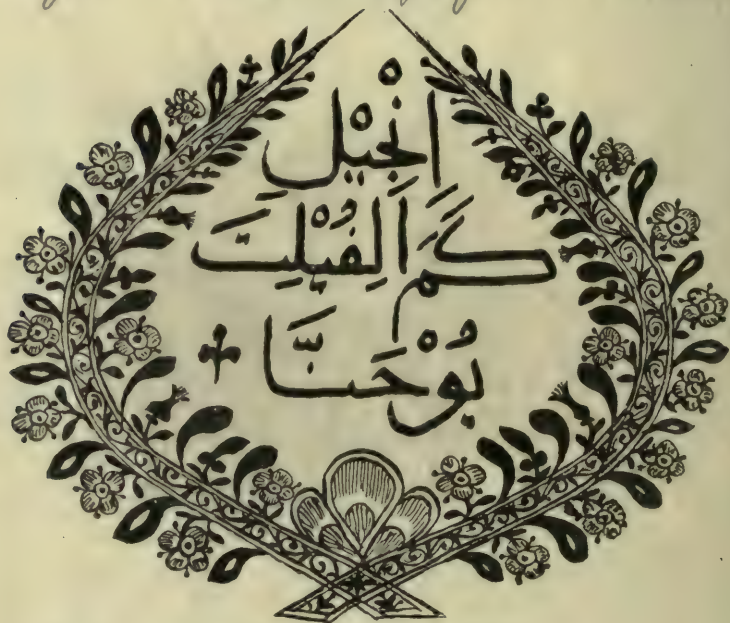 اِنْجِيْلِ
كَمَ اَلِفُيْلِتَ
يُوْحَنَّا